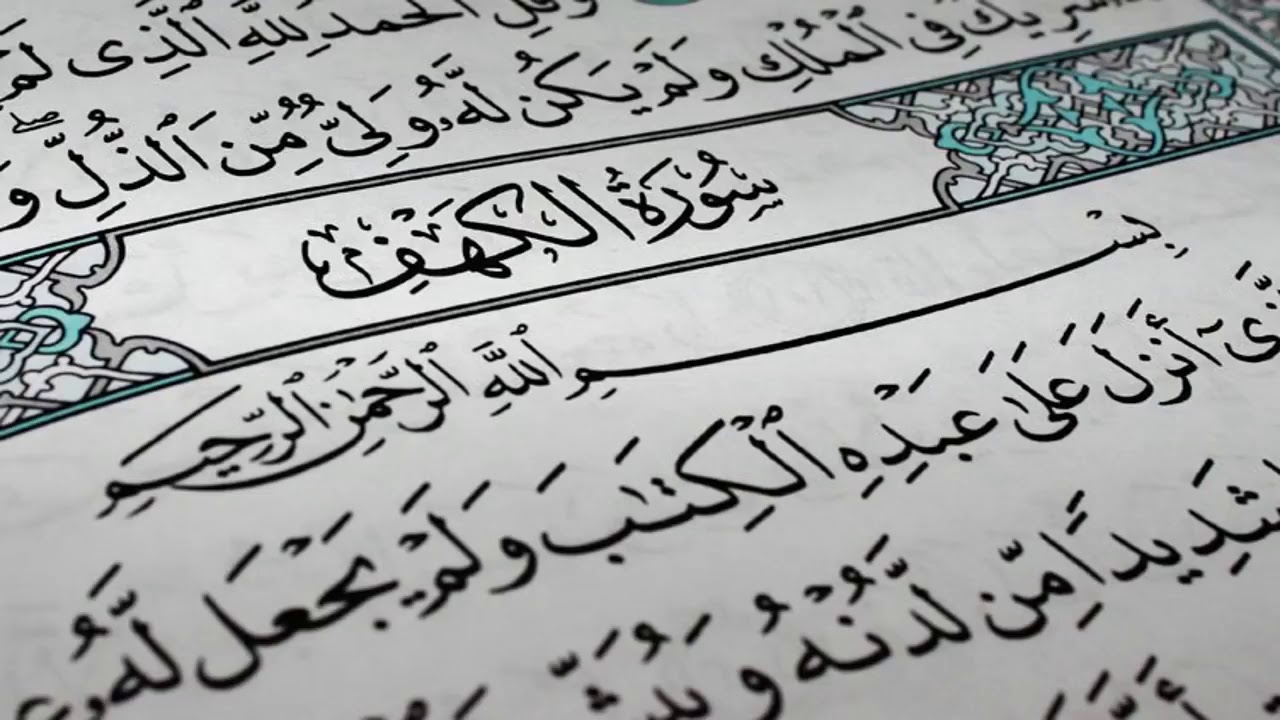 وَقُلِ ٱلْحَمْدُ لِلَّهِ ٱلَّذِى لَمْ
شَرِيكٌ فِى ٱلْمُلْكِ وَلَمْ يَكُن لَّهُۥ وَلِىٌّ مِّنَ ٱلذُّلِّ ۖ
سُورَةُ الكَهْفِ
بِسْمِ ٱللَّهِ ٱلرَّحْمَٰنِ ٱلرَّحِيمِ
أَنزَلَ عَلَىٰ عَبْدِهِ ٱلْكِتَٰبَ وَلَمْ يَجْعَل لَّهُۥ
مِّن لَّدُنْهُ